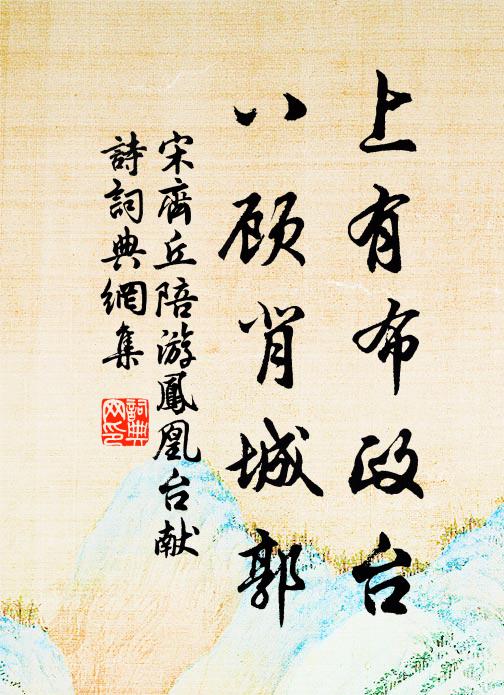 上有布政台
八顾背城郭
宋齊丘陪游鳳凰台献
詩詞典網集
詞典
网印